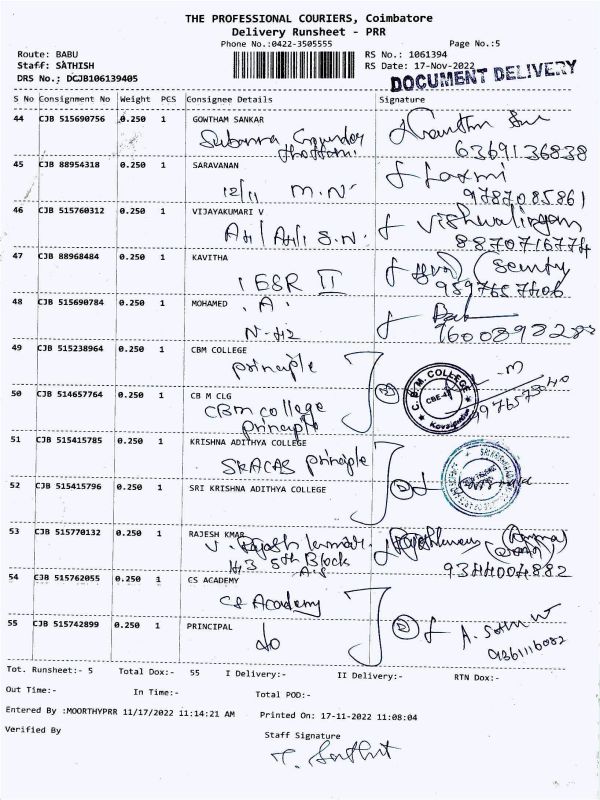 THE PROFESSIONAL COURIERS, Coimbatore
Delivery Runsheet - PRR
Phone No.:0422-3505555 Page No.:5
Route: BABU RS No.: 1061394
Staff: SATHISH RS Date: 17-Nov-2022
DRS No.: DCJB106139405 DOCUMENT DELIVERY
S No Consignment No Weight PCS Consignee Details Signature
44 CJB 515690756 0.250 1 GOWTHAM SANKAR
6369136838
45 CJB 88954318 0.250 1 SARAVANAN Laxmi
12/11 M.N 9787085861
46 CJB 515760312 0.250 1 VIJAYAKUMARI V Vishwalingam
S.N. 8870716774
47 CJB 88968484 0.250 1 KAVITHA
1 ESR II 9597657406
48 CJB 515690784 0.250 1 MOHAMED .A.
N-H2
49 CJB 515238964 0.250 1 CBM COLLEGE
principle
C.B.M. COLLEGE
50 CJB 514657764 0.250 1 CB M CLG
CBm college
principle
51 CJB 515415785 0.250 1 KRISHNA ADITHYA COLLEGE
SKACAS principle
52 CJB 515415796 0.250 1 SRI KRISHNA ADITHYA COLLEGE
53 CJB 515770132 0.250 1 RAJESH KMAR
V. Rajesh kumar
H3 5th Block 9344004882
54 CJB 515762055 0.250 1 CS ACADEMY
CS Academy
55 CJB 515742899 0.250 1 PRINCIPAL
do 9361116082
Tot. Runsheet:- 5 Total Dox:- 55 I Delivery:- II Delivery:- RTN Dox:-
Out Time:- In Time:- Total POD:-
Entered By :MOORTHYPRR 11/17/2022 11:14:21 AM Printed On: 17-11-2022 11:08:04
Verified By Staff Signature